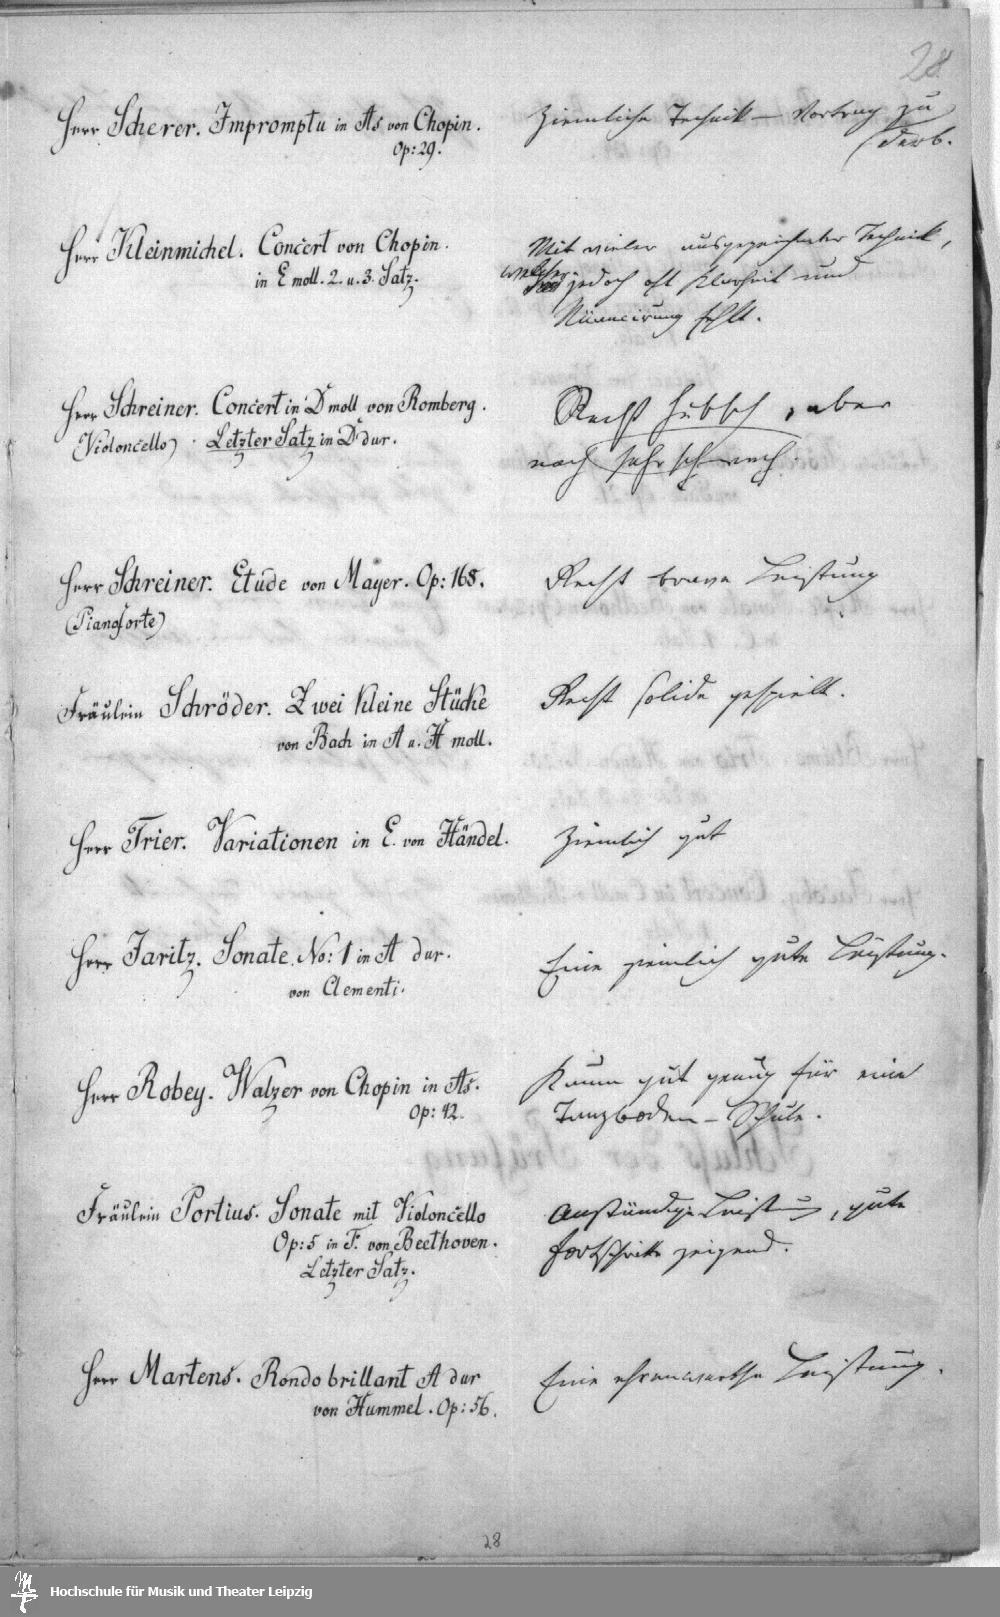 28
Herr Scherer. Impromptu in As von Chopin.
Op: 29.
Ziemliche Technik – Vortrag zu
derb.
Herr Kleinmichel. Concert von Chopin.
in E moll. 2. u. 3. Satz.
Mit vieler ausgezeichneter Technik,
welcher jedoch oft Klarheit und
Nüancirung fehlt.
Herr Schreiner. Concert in D moll von Romberg.
(Violoncello) Letzter Satz in D dur.
Recht hübsch, aber
noch sehr schwach.
Herr Schreiner. Etude von Mayer. Op: 168.
(Pianoforte)
Recht brave Leistung
Fräulein Schröder. Zwei kleine Stücke
von Bach in A u. H moll.
Recht solide gespielt.
Herr Trier. Variationen in E. von Händel.
Ziemlich gut
Herr Jaritz. Sonate. No: 1 in A dur.
von Clementi.
Eine ziemlich gute Leistung.
Herr Robey. Walzer von Chopin in As.
Op: 42.
Kaum gut genug für eine
Tanzboden-Schule.
Fräulein Portius. Sonate mit Violoncello
Op: 5 in F. von Beethoven.
Letzter Satz.
Anständige Leistung, gute
Fortschritte zeigend.
Herr Martens. Rondo brillant A dur
von Hummel. Op: 56.
Eine ehrenwerthe Leistung.
28
Hochschule für Musik und Theater Leipzig